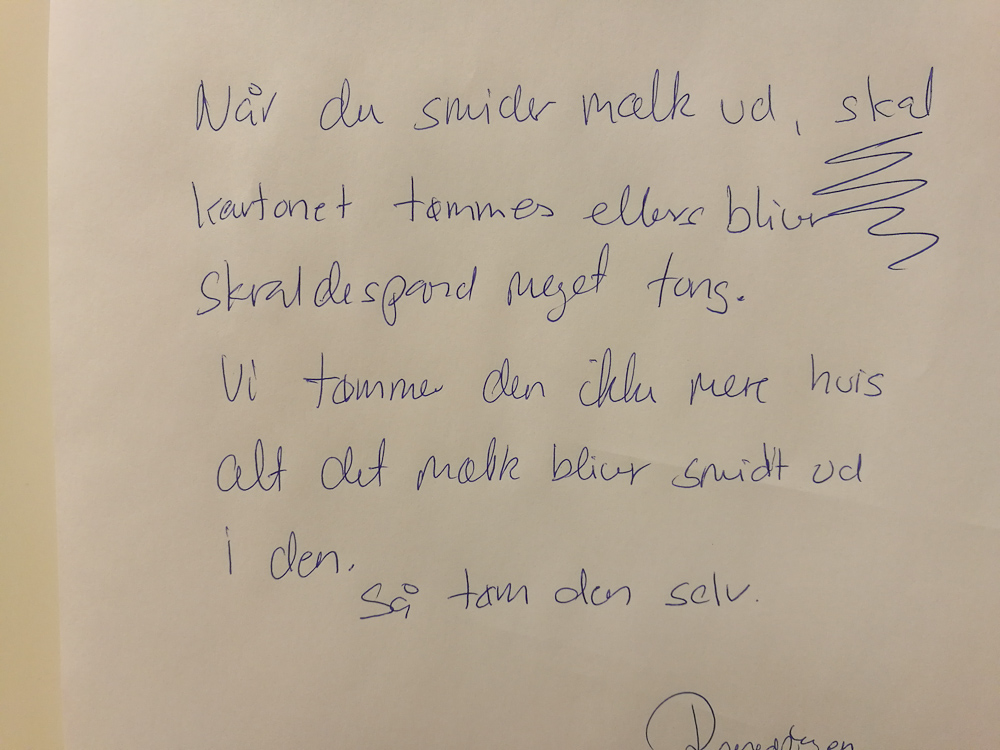 Når du smider mælk ud, skal
kartonet tømmes ellers bliver
skraldespand meget tung.
Vi tømmer den ikke mere hvis
alt det mælk bliver smidt ud
i den.
Så tøm den selv.